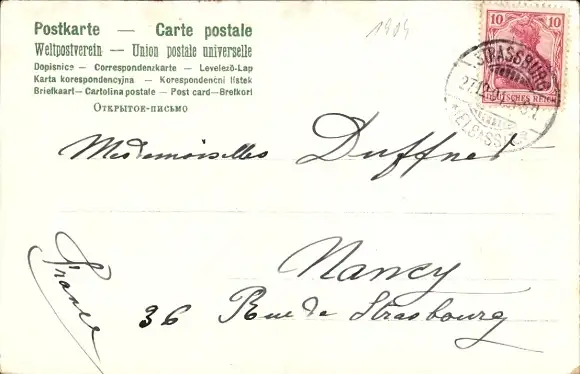 Postkarte — Carte postale
Weltpostverein — Union postale universelle
Dopisnice — Correspondenzkarte — Levelező-Lap
Karta korespondencyjna — Korespondenční lístek
Briefkaart — Cartolina postale — Post card — Brefkort
Открытое-письмо
1904
10 10
DEUTSCHES REICH
STRASSBURG
(ELSASS)
Mesdemoiselles Duffner
Nancy
36 Rue de Strasbourg
France